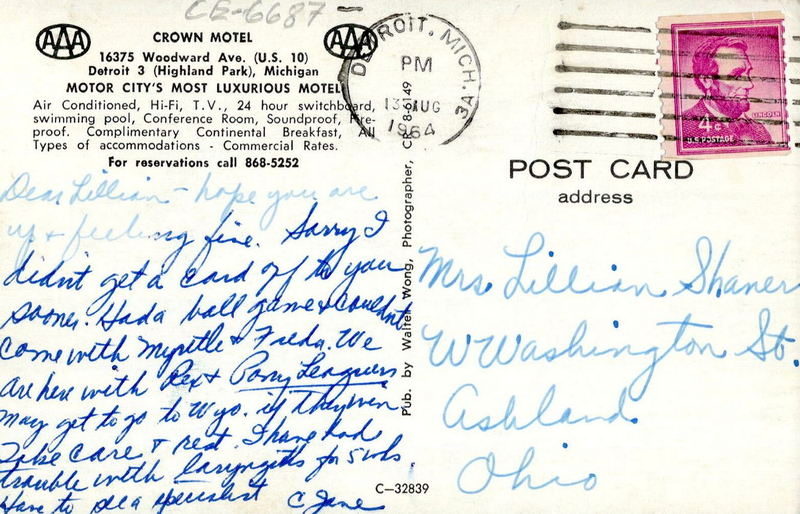 CE-6687
AAA
AAA
CROWN MOTEL
16375 Woodward Ave. (U.S. 10)
Detroit 3 (Highland Park), Michigan
MOTOR CITY'S MOST LUXURIOUS MOTEL
Air Conditioned, Hi-Fi, T.V., 24 hour switchboard,
swimming pool, Conference Room, Soundproof, Fire-
proof. Complimentary Continental Breakfast, All
Types of accommodations - Commercial Rates.
For reservations call 868-5252
Dear Lillian - hope you are
up & feeling fine. Sorry I
didn't get a card off to you
sooner. Had a ball game & couldn't
come with Myrtle & Freda. We
are here with Rex & Pony Leaguers
may get to go to Wyo. if they win
Take care & rest. I have had
trouble with laryngitis for 5 wks.
Have to see a specialist C Jane
Pub. by Walter Wong, Photographer,
C-32839
DETROIT, MICH.
PM
13 AUG
1964
3A
4¢
LINCOLN
U.S. POSTAGE
POST CARD
address
Mrs. Lillian Shaner
W Washington St.
Ashland
Ohio